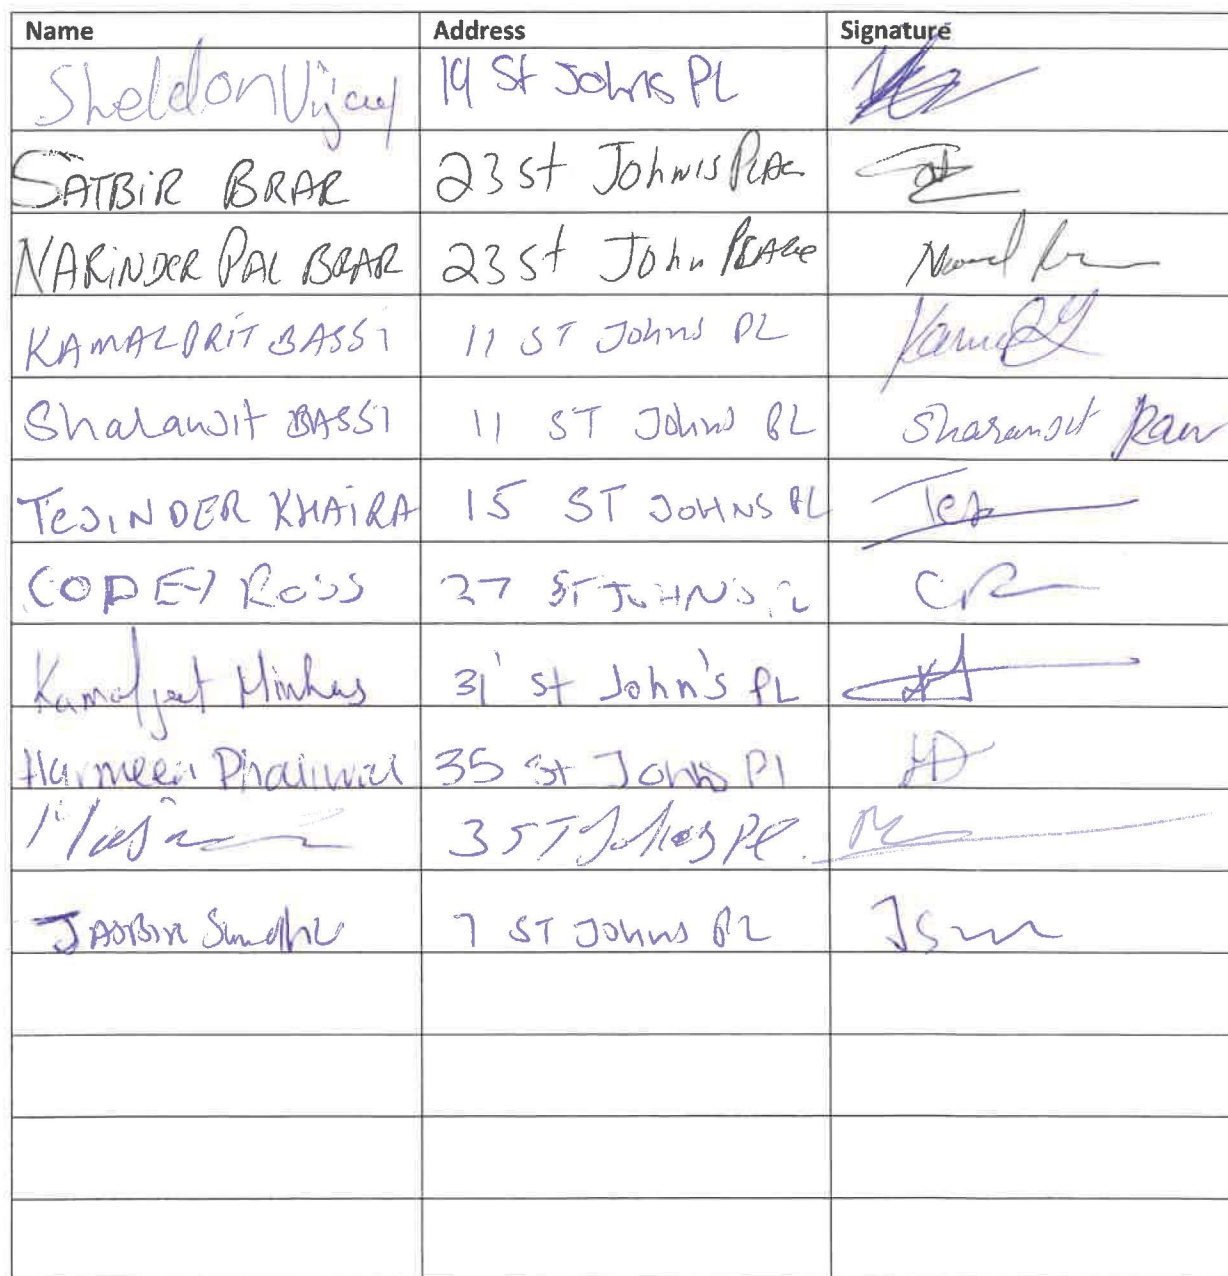 Name Address Signature
Sheldon Vijay 19 St Johns PL
SATBIR BRAR 23 st John's PLAC
NARINDER PAL BRAR 23 st John PLACE
KAMALPRIT BASSI 11 ST Johns PL
Sharanjit BASSI 11 ST Johns PL Sharanjit Kaur
TEJINDER KHAIRA 15 ST JOHNS PL Tej
CODEY ROSS 27 ST JOHNS PL CR
Kamaljeet Minhas 31 St John's PL
Harmeen Dhaliwal 35 St Johns Pl HD
3 ST Johns Pl.
JASBIR Sandhu 7 ST Johns PL JS